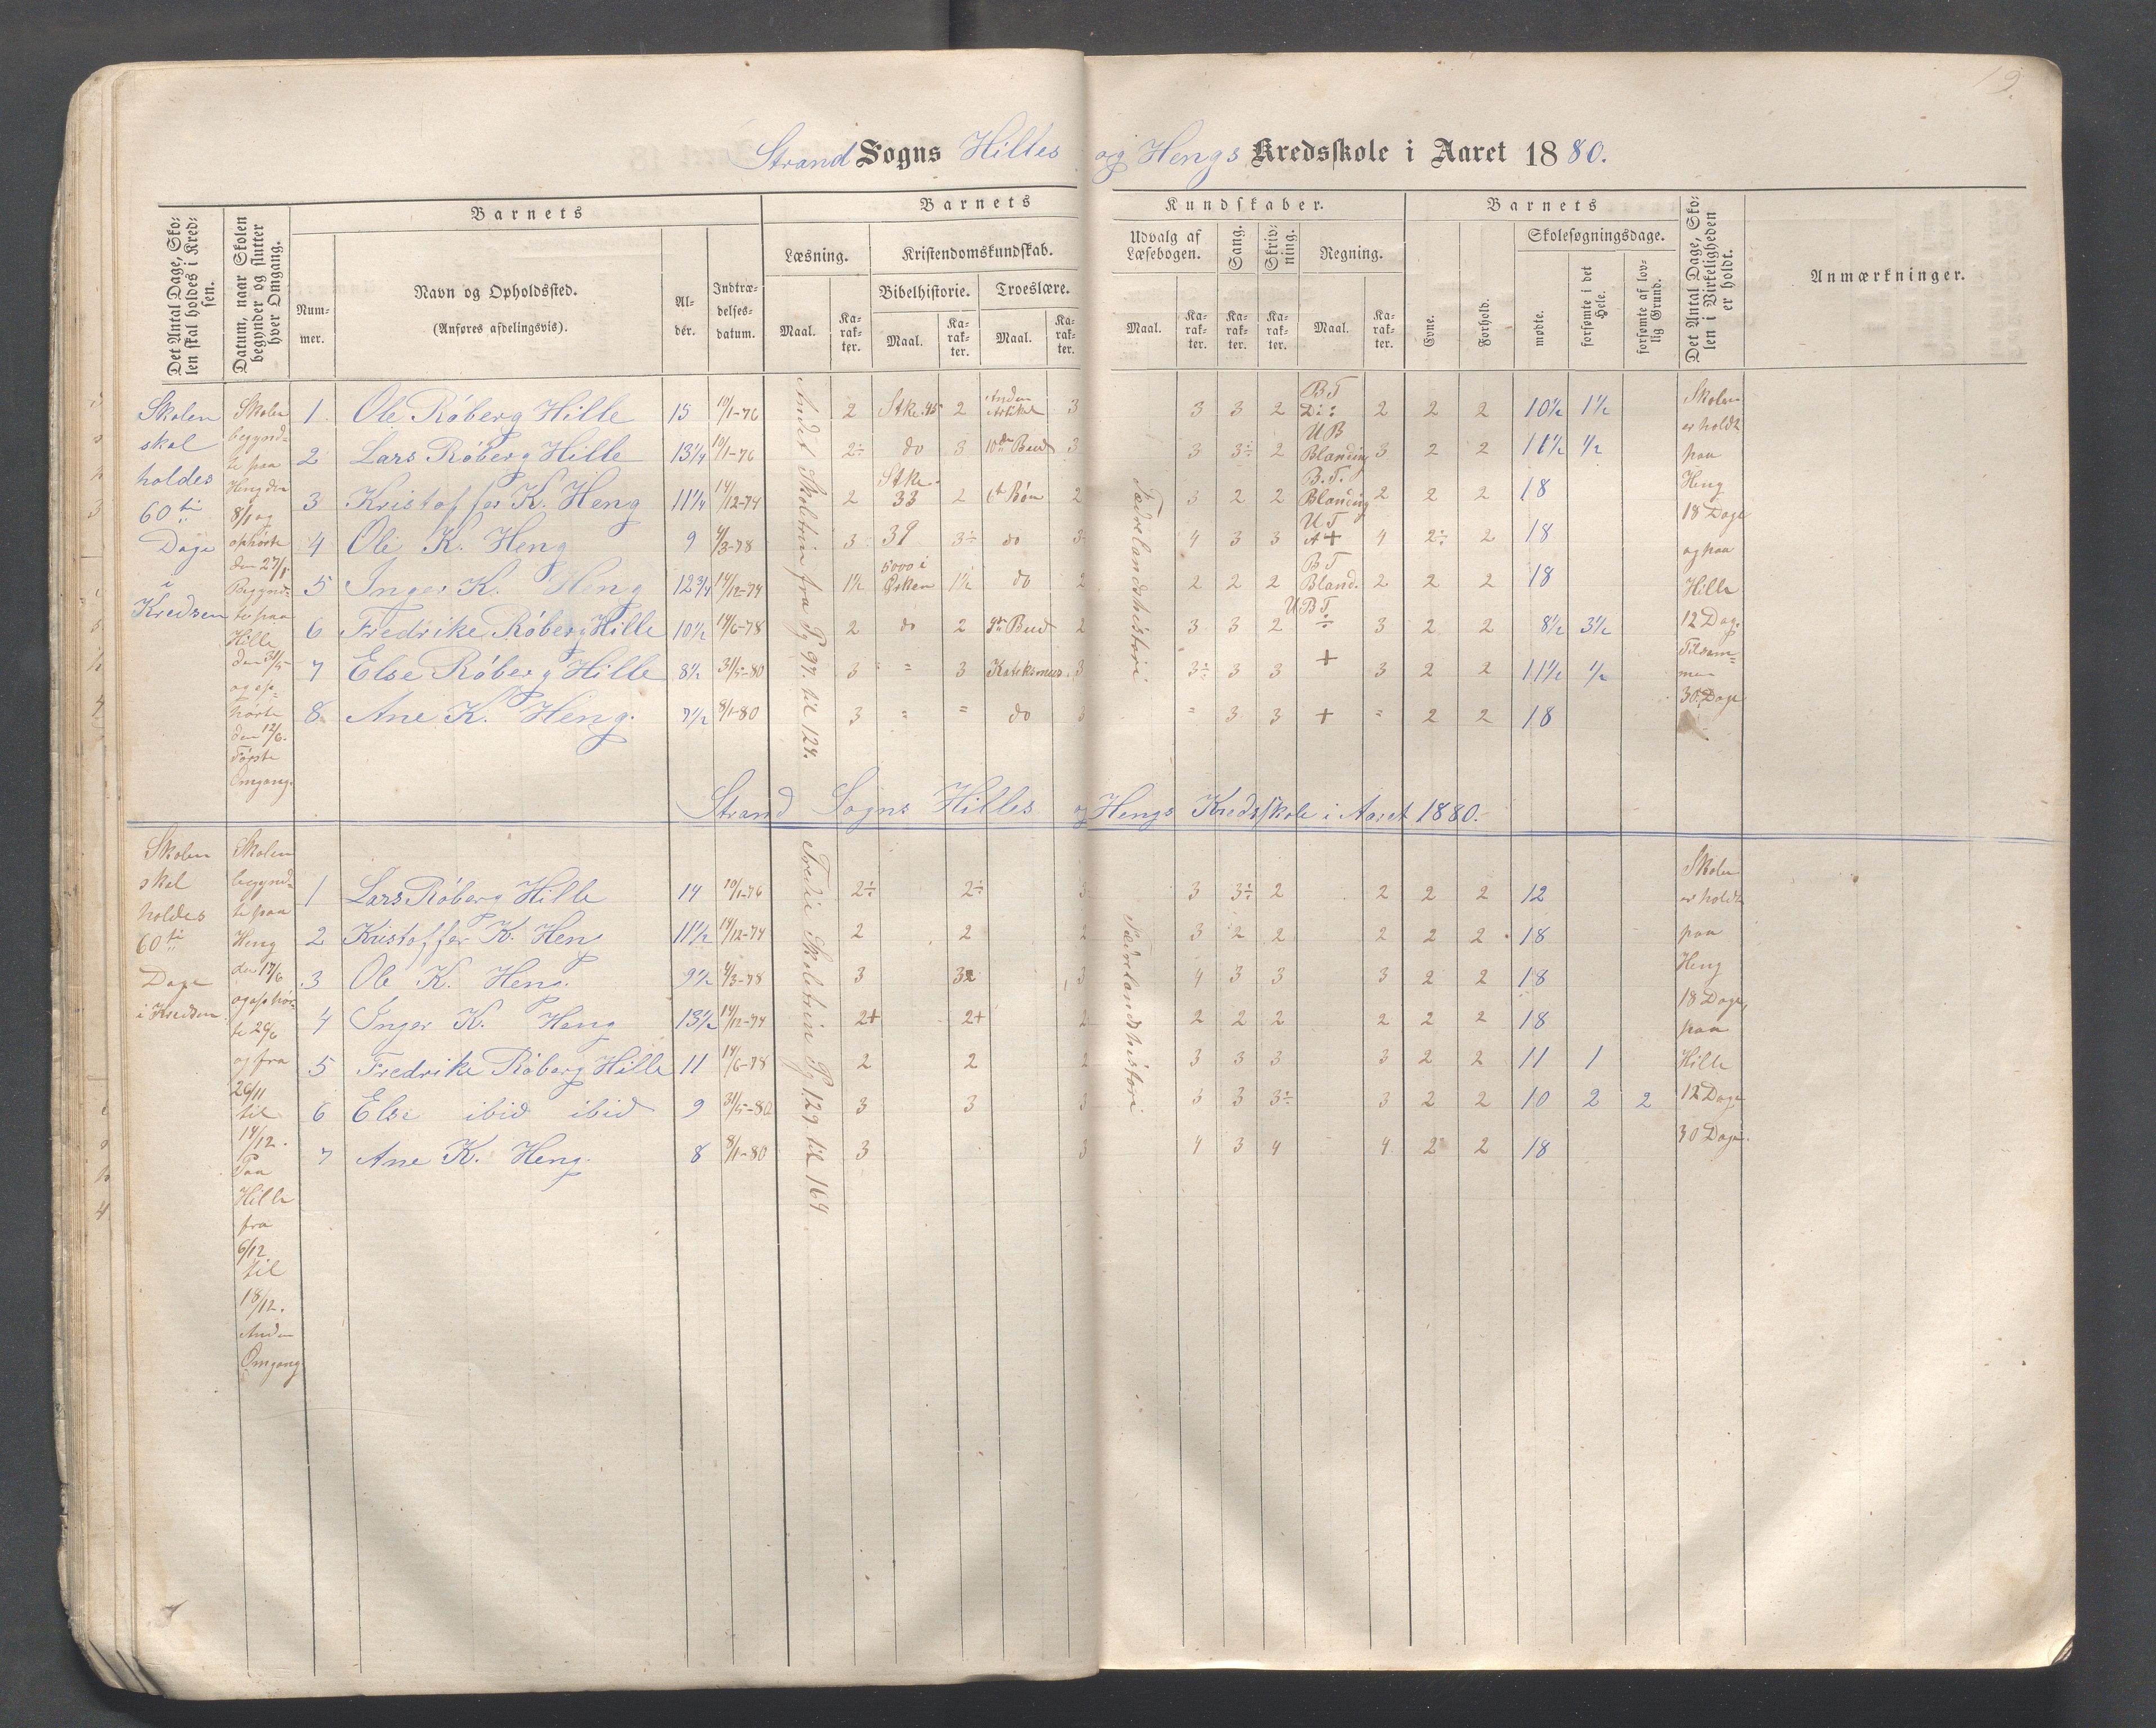 19.
Strand Sogns Hilles og Hengs Kredsskole i Aaret 1880.
Det Antal Dage, Skolen skal holdes i Kredsen.
Datum, naar Skolen begynder og slutter hver Omgang.
Barnets
Nummer.
Navn og Opholdssted.
(Anføres afdelingsvis).
Alder.
Indtrædelsesdatum.
Barnets
Læsning.
Maal.
Karakter.
Kristendomskundskab.
Bibelhistorie.
Maal.
Karakter.
Troeslære.
Maal.
Karakter.
Kundskaber.
Udvalg af Læsebogen.
Maal.
Karakter.
Sang.
Karakter.
Skrivning.
Karakter.
Regning.
Maal.
Karakter.
Barnets
Evne.
Forhold.
Skolesøgningsdage.
mødte.
forsømte i det Hele.
forsømte af lovlig Grund.
Det Antal Dage, Skolen i Virkeligheden er holdt.
Anmærkninger.
Skolen
skal
holdes
60 ti
Dage
i
Kredsen
Skolen
begynd-
te paa
Heng den
8/1 og
ophørte
den 27/1
Begynd-
te paa
Hille
den 31/5
og op-
hørte
den 12/6.
Første
Omgang.
Andet Skoletrin fra Pg 97. til 124.
Fædrelandshistori
1 Ole Røberg Hille 15 10/1-76 2 Stke 45 2 Anden Artikel 3 3 3 2 BT Di: 2 2 2 10½ 1½
2 Lars Røberg Hille 13¼ 10/1-76 2÷ do 3 10de Bud 3 3 3÷ 2 UB Blanding 3 2 2 11½ ½
3 Kristoffer K. Heng 11¼ 14/12-74 2 Stke 33 2 6te Bøn 2 3 2 2 B.T. Blanding 2 2 2 18
4 Ole K. Heng 9 4/3-78 3 39 3÷ do 3 4 3 3 UT A+ 4 2÷ 2 18
5 Inger K. Heng 12¾ 14/12-74 1½ 5000 i Ørken 1½ do 2 2 2 2 BT Bland. 2 2 2 18
6 Fredrike Røberg Hille 10½ 14/6-78 2 do 2 Bud 2 3 3 2 UBT ÷ 3 2 2 8½ 3½
7 Else Røberg Hille 8½ 31/5-80 3 " = 3 Kateksmus 3 3÷ 3 3 + 3 2 2 11½ ½
8 Ane K. Heng. 7½ 8/1-80 3 = = do 3 = 3 3 + = 2 2 18
Skolen
er holdt
paa
Heng
18 Dage
og paa
Hille
12 Dag.
Tilsam-
men
30 Dage
Strand Sogns Hilles og Hengs Kredsskole i Aaret 1880.
Skolen
skal
holdes
60 ti
Dage
i Kredsen.
Skolen
begynd-
te paa
Heng
den 17/6
og ophør-
te 26/6
og fra
26/11
til
14/12.
Paa
Hille
fra
6/12
til
18/12.
Anden
Omgang
Tredie Skoletrin Pg 129 til 164
Fædrelandshistori
1 Lars Røberg Hille 14 10/1-76 2÷ 2÷ 3 3 3÷ 2 2 2 2 12
2 Kristoffer K. Heng 11½ 14/12-74 2 2 2 3 2 2 2 2 2 18
3 Ole K. Heng. 9½ 4/3-78 3 3 3 4 3 3 3 2 2 18
4 Inger K. Heng 13½ 14/12-74 2+ 2+ 2 2 2 2 2 2 2 18
5 Fredrike Røberg Hille 11 14/6-78 2 2 2 3 3 3 3 2 2 11 1
6 Else ibid ibid 9 31/5-80 3 3 3 3 3 3÷ 3 2 2 10 2 2
7 Ane K. Heng. 8 8/1-80 3 3 4 3 4 4 2 2 18
Skolen
er holdt
paa
Heng
18 Dage,
paa
Hille
12 Dage
30 Dage.